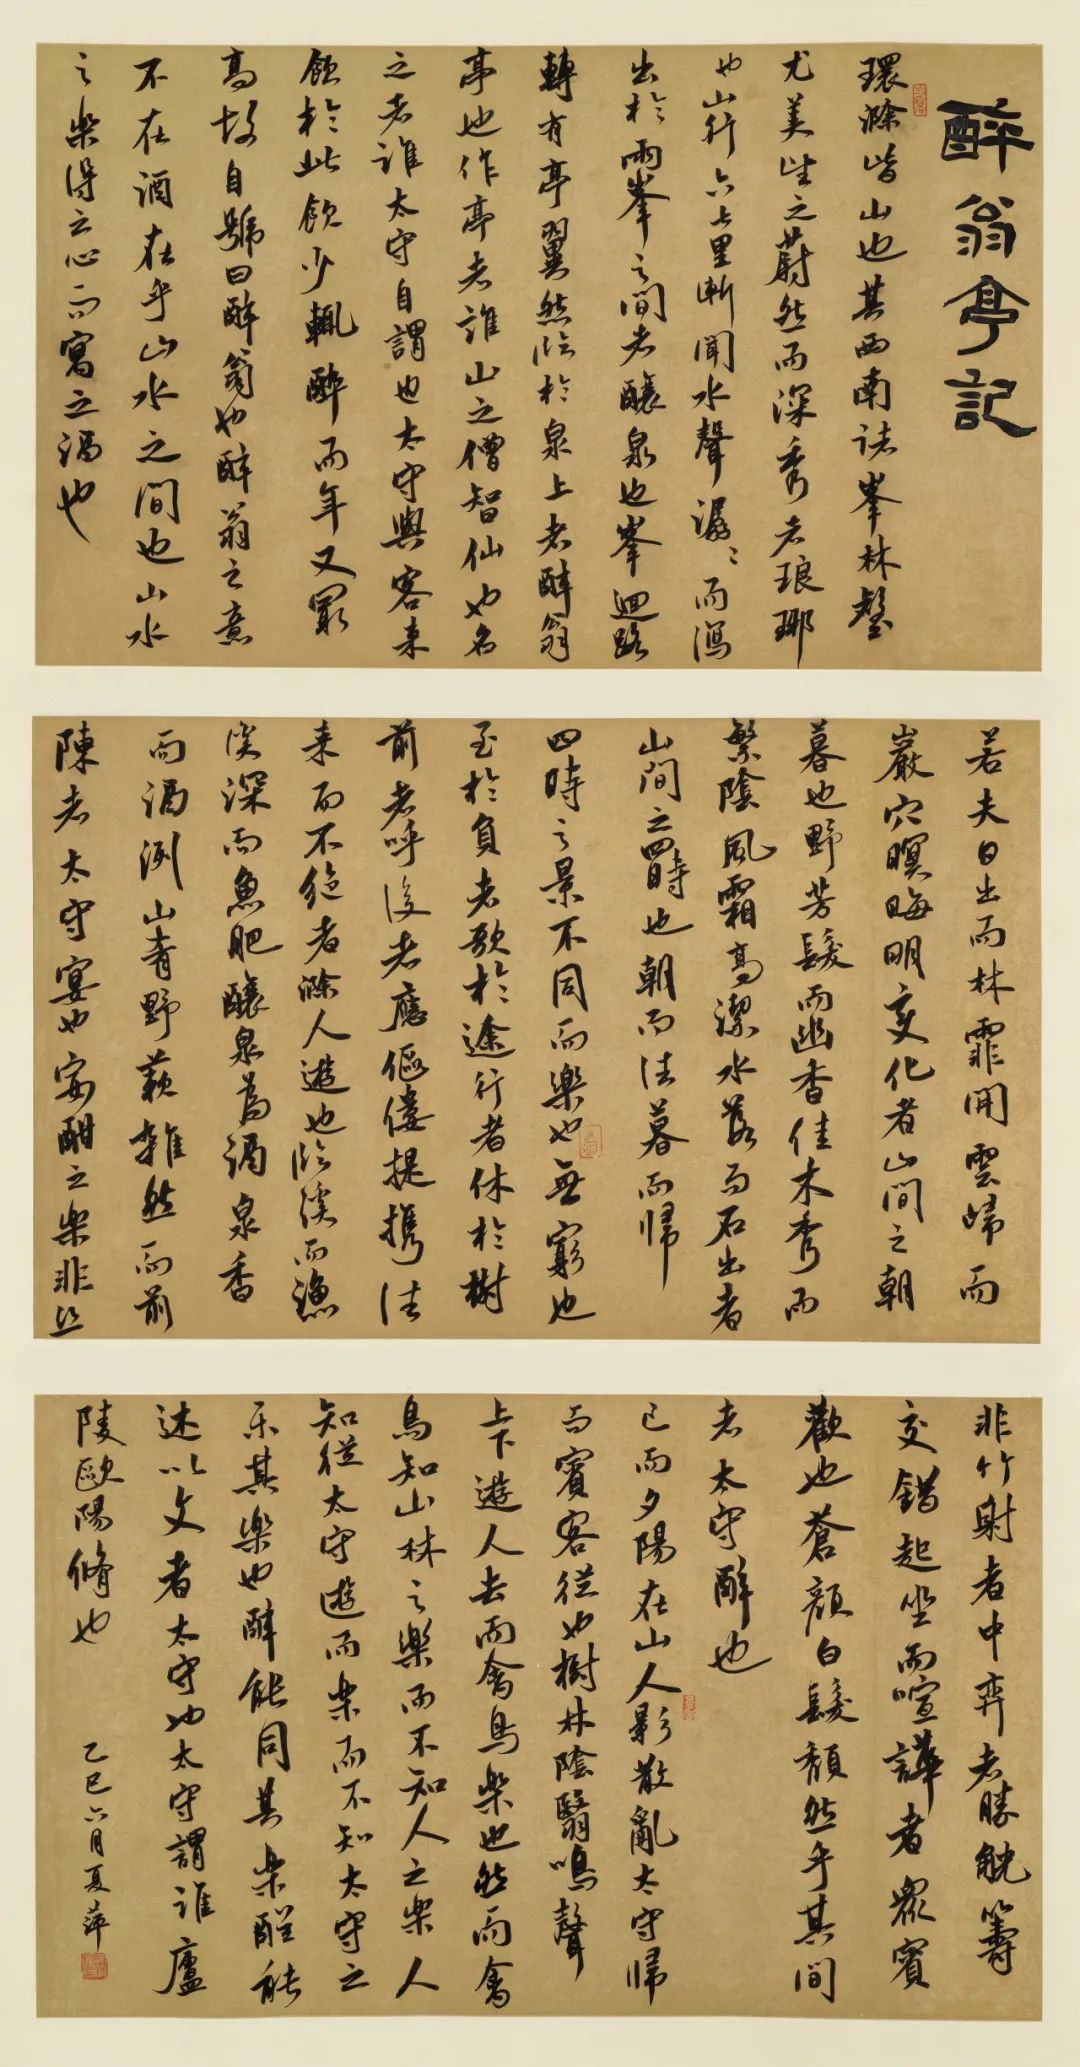 醉翁亭記
環滁皆山也其西南諸峯林壑
尤美望之蔚然而深秀者琅琊
也山行六七里漸聞水聲潺〻而瀉
出於兩峯之間者釀泉也峯迴路
轉有亭翼然臨於泉上者醉翁
亭也作亭者誰山之僧智仙也名
之者誰太守自謂也太守與客来
飲於此飲少輒醉而年又最
高故自號曰醉翁也醉翁之意
不在酒在乎山水之間也山水
之樂得之心而寓之酒也
若夫日出而林霏開雲歸而
巖穴暝晦明变化者山間之朝
暮也野芳發而幽香佳木秀而
繁陰風霜高潔水落而石出者
山間之四時也朝而往暮而歸
四時之景不同而樂也無窮也
至於負者歌於途行者休於樹
前者呼後者應傴僂提携往
来而不绝者滁人遊也臨溪而漁
溪深而魚肥釀泉為酒泉香
而酒洌山肴野蔌雜然而前
陳者太守宴也宴酣之樂非丝
非竹射者中弈者勝觥籌
交錯起坐而喧譁者眾賓
歡也蒼顏白髮頹然乎其間
者太守醉也
已而夕陽在山人影散亂太守歸
而賓客從也樹林陰翳鳴聲
上下遊人去而禽鳥樂也然而禽
鳥知山林之樂而不知人之樂人
知從太守遊而樂而不知太守之
乐其樂也醉能同其樂醒能
述以文者太守也太守謂誰廬
陵歐陽脩也
乙巳六月夏萍